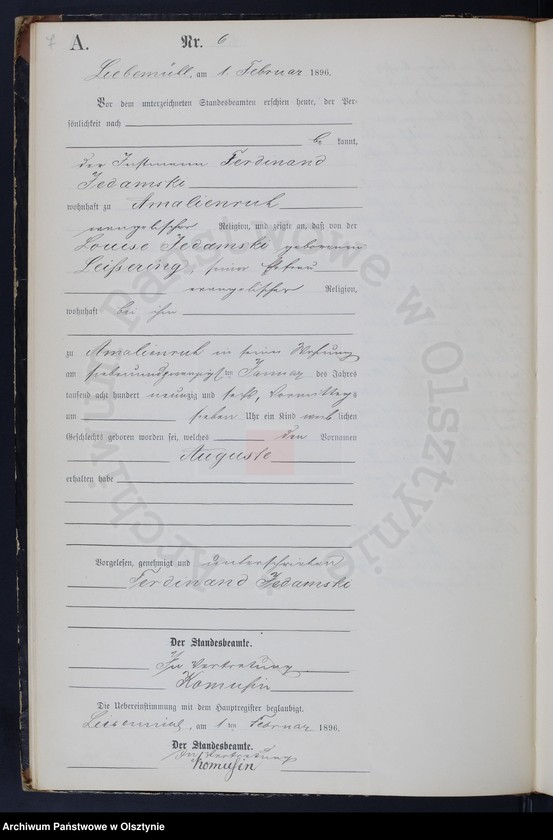 7 A. Nr. 6
Liebemühl, am 1. Februar 1896.
Vor dem unterzeichneten Standesbeamten erschien heute, der Per-
sönlichkeit nach
be kannt,
der Instmann Ferdinand
Jedamski
wohnhaft zu Amalienruh
evangelischer Religion, und zeigte an, daß von der
Louise Jedamski geborenen
Leißering, seiner Ehefrau
evangelischer Religion,
wohnhaft bei ihm
zu Amalienruh in seiner Wohnung
am siebenundzwanzigsten Januar des Jahres
tausend acht hundert neunzig und sechs, Vormittags
um sieben Uhr ein Kind weiblichen
Geschlechts geboren worden sei, welches den Vornamen
Auguste
erhalten habe
Vorgelesen, genehmigt und unterschrieben
Ferdinand Jedamski
Der Standesbeamte.
In Vertretung
Komusin
Die Uebereinstimmung mit dem Hauptregister beglaubigt.
Liebemühl, am 1ten Februar 1896.
Der Standesbeamte.
In Vertretung
Komusin
Archiwum Państwowe w Olsztynie
Archiwum Państwowe w Olsztynie